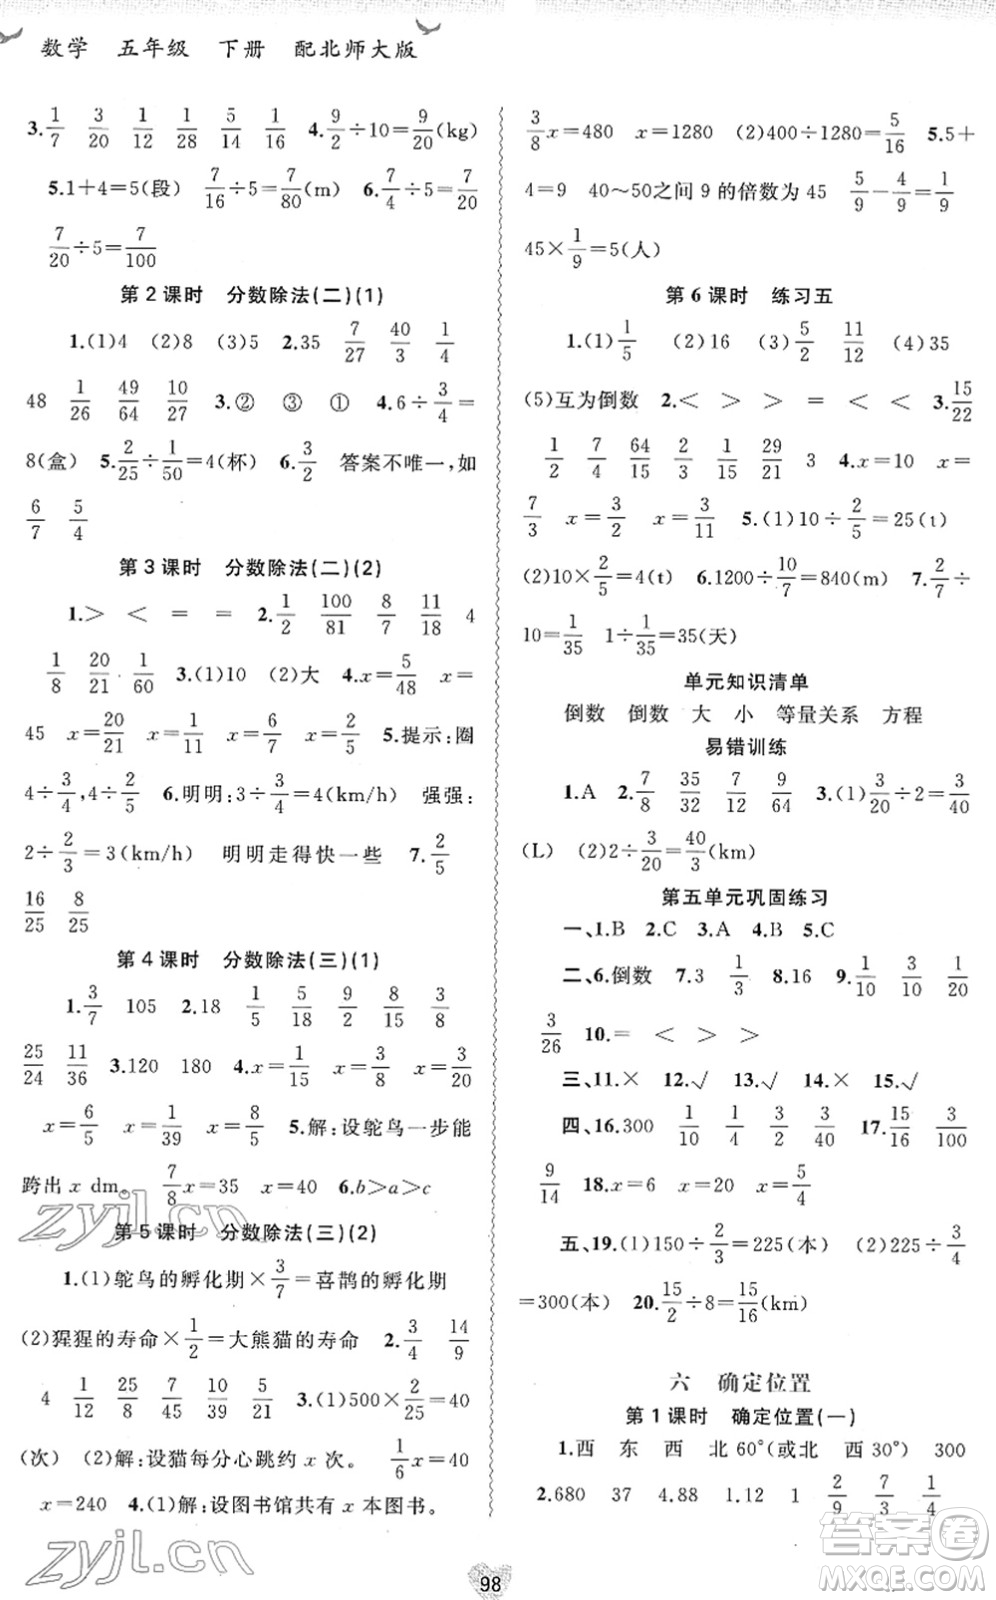 数学 五年级 下册 配北师大版
3. 1/7 3/20 1/12 1/28 5/14 1/16 4. 9/2÷10=9/20(kg)
5.1+4=5(段) 7/16÷5=7/80(m) 6. 7/4÷5=7/20
7/20÷5=7/100
第2课时 分数除法(二)(1)
1.(1)4 (2)8 (3)5 2.35 7/27 40/3 1/4
48 1/26 49/64 10/27 3.② ③ ① 4.6÷3/4=
8(盒) 5. 2/25÷1/50=4(杯) 6. 3/2 答案不唯一,如
6/7 5/4
第3课时 分数除法(二)(2)
1.> < = = 2. 1/2 100/81 8/7 11/18 4
1/8 20/21 1/60 3.(1)10 (2)大 4.x=5/48 x=
45 x=20/21 x=1/11 x=6/7 x=2/5 5.提示:圈
4÷3/4,4÷2/5 6.明明:3÷3/4=4(km/h) 强强:
2÷2/3=3(km/h) 明明走得快一些 7. 2/5
16/25 8/25
第4课时 分数除法(三)(1)
1. 3/7 105 2.18 1/5 5/18 9/2 8/5 3/8
25/24 11/36 3.120 180 4.x=1/15 x=3/8 x=3/20
x=6/5 x=1/39 x=8/5 5.解:设鸵鸟一步能
跨出 x dm。 7/8x=35 x=40 6.b>a>c
第5课时 分数除法(三)(2)
1.(1)鸵鸟的孵化期×3/7=喜鹊的孵化期
(2)猩猩的寿命×1/2=大熊猫的寿命 2. 3/4 14/9
4 1/12 25/8 7/5 9/20 5/21 3.(1)500×2/25=40
(次) (2)解:设猫每分心跳约 x 次。 1/6x=40
x=240 4.(1)解:设图书馆共有 x 本图书。
3/8x=480 x=1280 (2)400÷1280=5/16 5.5+
4=9 40～50之间 9 的倍数为 45 5/9-4/9=1/9
45×1/9=5(人)
第6课时 练习五
1.(1)1/5 (2)16 (3)5/2 11/12 (4)35
(5)互为倒数 2.< > > = < < 3. 15/22
1/2 7/4 64/15 1/15 29/21 3 4.x=10 x=
7/3 x=3/2 x=3/11 5.(1)10÷2/5=25(t)
(2)10×2/5=4(t) 6.1200÷10/7=840(m) 7. 2/7÷
10=1/35 1÷1/35=35(天)
单元知识清单
倒数 倒数 大 小 等量关系 方程
易错训练
1.A 2. 7/8 35/32 7/12 9/64 3.(1)3/20÷2=3/40
(L) (2)2÷3/20=40/3(km)
第五单元巩固练习
一、1.B 2.C 3.A 4.B 5.C
二、6.倒数 7.3 1/3 8.16 9. 1/10 3/10 1/20
3/26 10.= < > >
三、11.× 12.√ 13.√ 14.× 15.√
四、16.300 1/10 1/4 3/2 3/40 17. 15/16 3/100
9/14 18.x=6 x=20 x=5/4
五、19.(1)150÷2/3=225(本) (2)225÷3/4
=300(本) 20. 15/2÷8=15/16(km)
六 确定位置
第1课时 确定位置(一)
1.西 东 西 北 60°(或北 西 30°) 300
2.680 37 4.88 1.12 1 2/9 7/3 1/4
98
zyjl.cn
zyjl.cn
答案圈
MXQE.COM